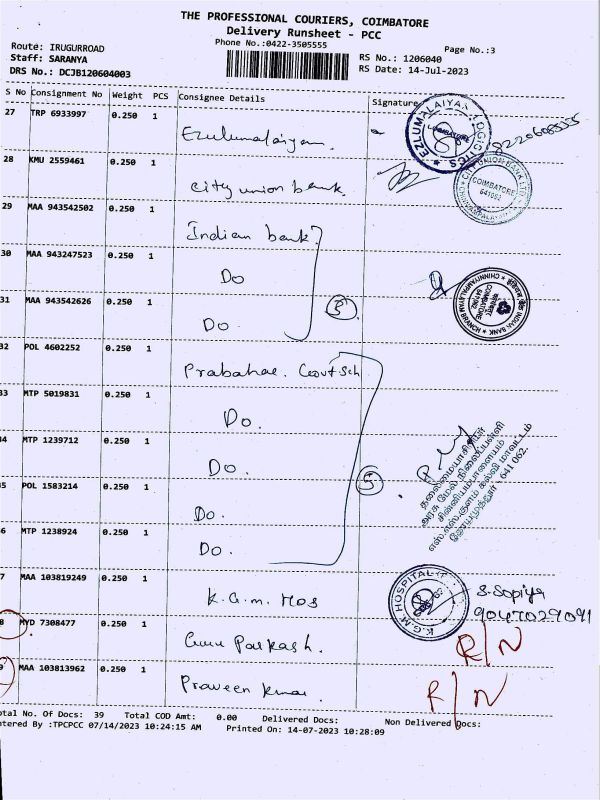 THE PROFESSIONAL COURIERS, COIMBATORE
Delivery Runsheet - PCC
Phone No.:0422-3505555
Page No.:3
Route: IRUGURROAD
Staff: SARANYA
DRS No.: DCJB120604003
RS No.: 1206040
RS Date: 14-Jul-2023
S No Consignment No Weight PCS Consignee Details Signature
27 TRP 6933997 0.250 1 Ezulumalaiyan.
EZLUMALAIYAN LOGISTICS COIMBATORE
28 KMU 2559461 0.250 1 City union bank.
CITY UNION BANK LTD COIMBATORE 641062
29 MAA 943542502 0.250 1 Indian bank
30 MAA 943247523 0.250 1 Do
31 MAA 943542626 0.250 1 Do
3
INDIAN BANK CHINNIYAMPALAYAM BRANCH COIMBATORE 641062
32 POL 4602252 0.250 1 Prabahar. Govt Sch
33 MTP 5019831 0.250 1 Do.
34 MTP 1239712 0.250 1 Do.
35 POL 1583214 0.250 1 Do.
36 MTP 1238924 0.250 1 Do.
5
தலைமையாசிரியர்
அரசு மேல் நிலைப்பள்ளி
சின்னியம்பாளையம்
எஸ்.எஸ்.குளம் கல்வி மாவட்டம்
கோயமுத்தூர் - 641 062.
37 MAA 103819249 0.250 1 K.G.M. Hos
K.G.M. HOSPITAL
S. Sopiya
9047029091
38 MYD 7308477 0.250 1 Guru Parkash.
R/N
39 MAA 103813962 0.250 1 Praveen Kumar.
R/N
otal No. Of Docs: 39 Total COD Amt: 0.00 Delivered Docs: Non Delivered Docs:
ntered By :TPCPCC 07/14/2023 10:24:15 AM Printed On: 14-07-2023 10:28:09